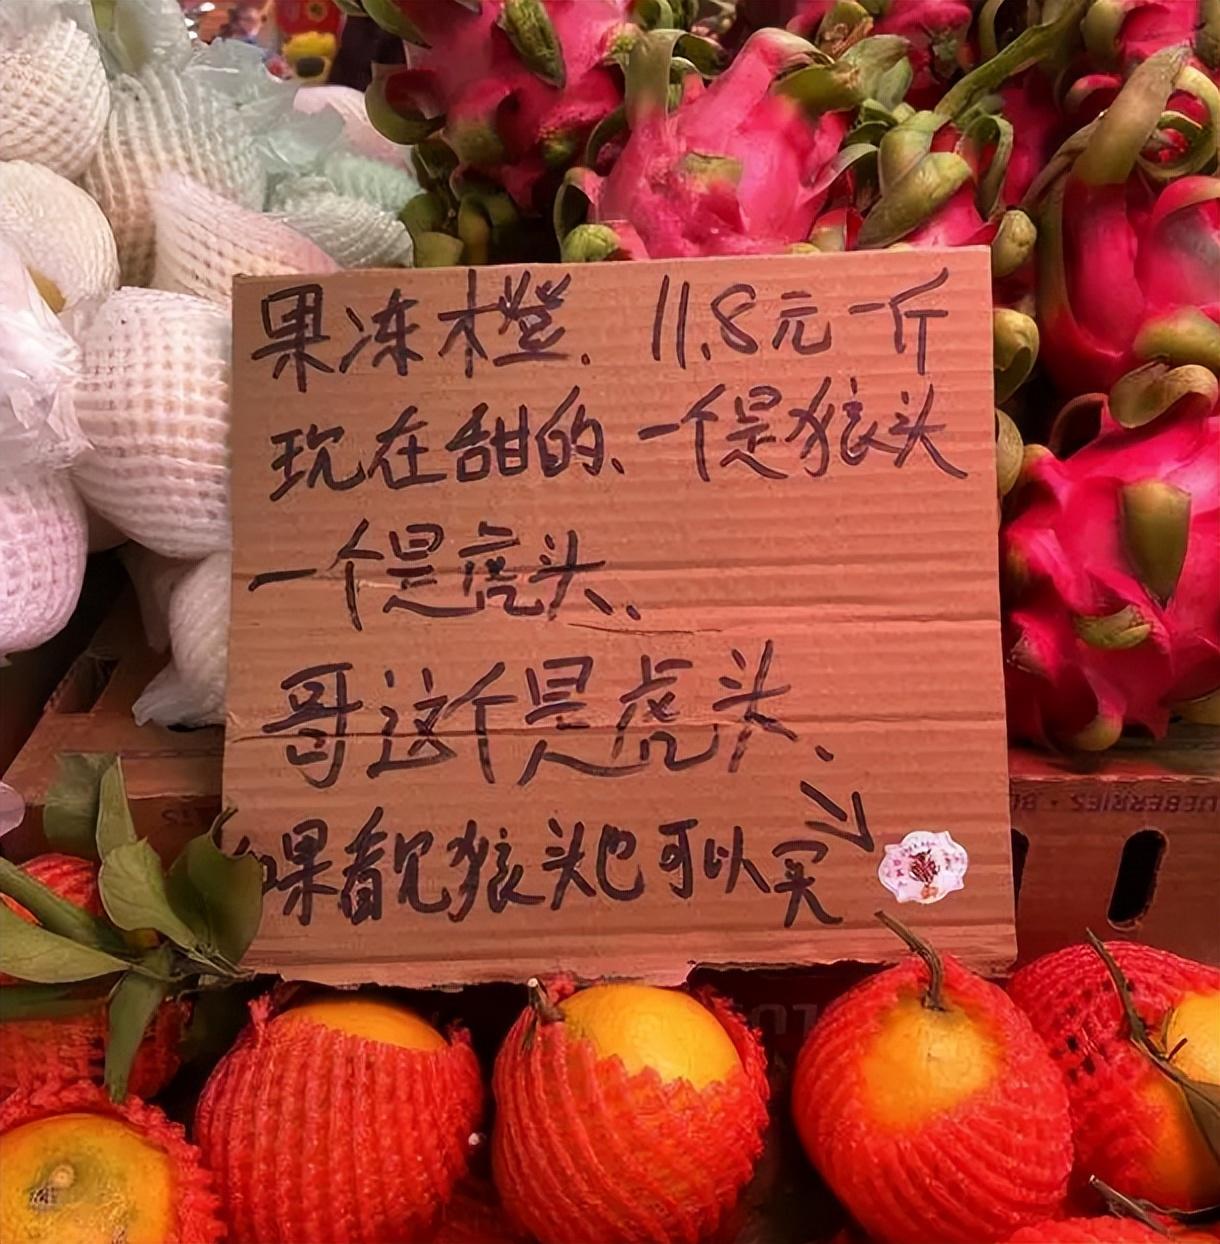 果冻橙. 11.8元一斤
现在甜的、一个是狼头
一个是虎头、
哥这个是虎头、
如果看见狼头也可以买
BLUEBERRIES